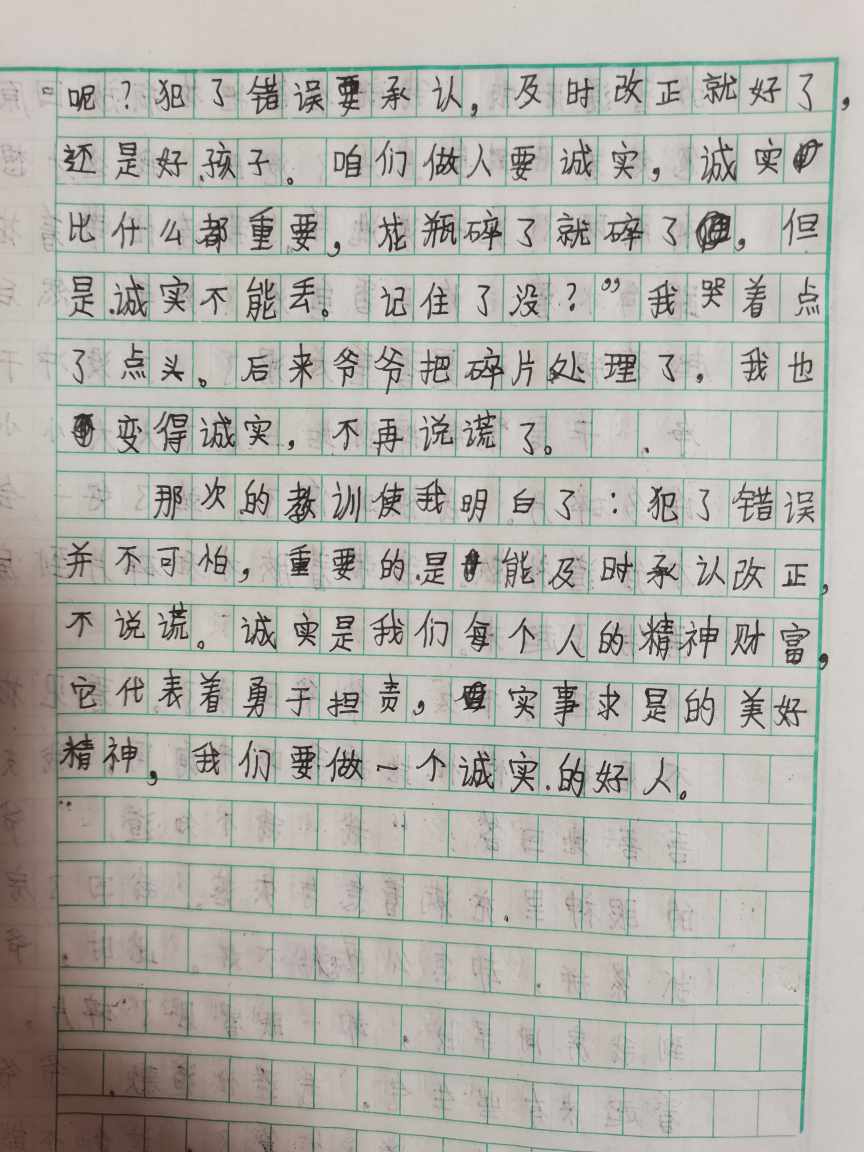 呢？犯了错误要承认，及时改正就好了，
还是好孩子。咱们做人要诚实，诚实
比什么都重要，花瓶碎了就碎了，但
是诚实不能丢。记住了没？”我哭着点
了点头。后来爷爷把碎片处理了，我也
变得诚实，不再说谎了。
那次的教训使我明白了：犯了错误
并不可怕，重要的是能及时承认改正，
不说谎。诚实是我们每个人的精神财富，
它代表着勇于担责，实事求是的美好
精神，我们要做一个诚实的好人。